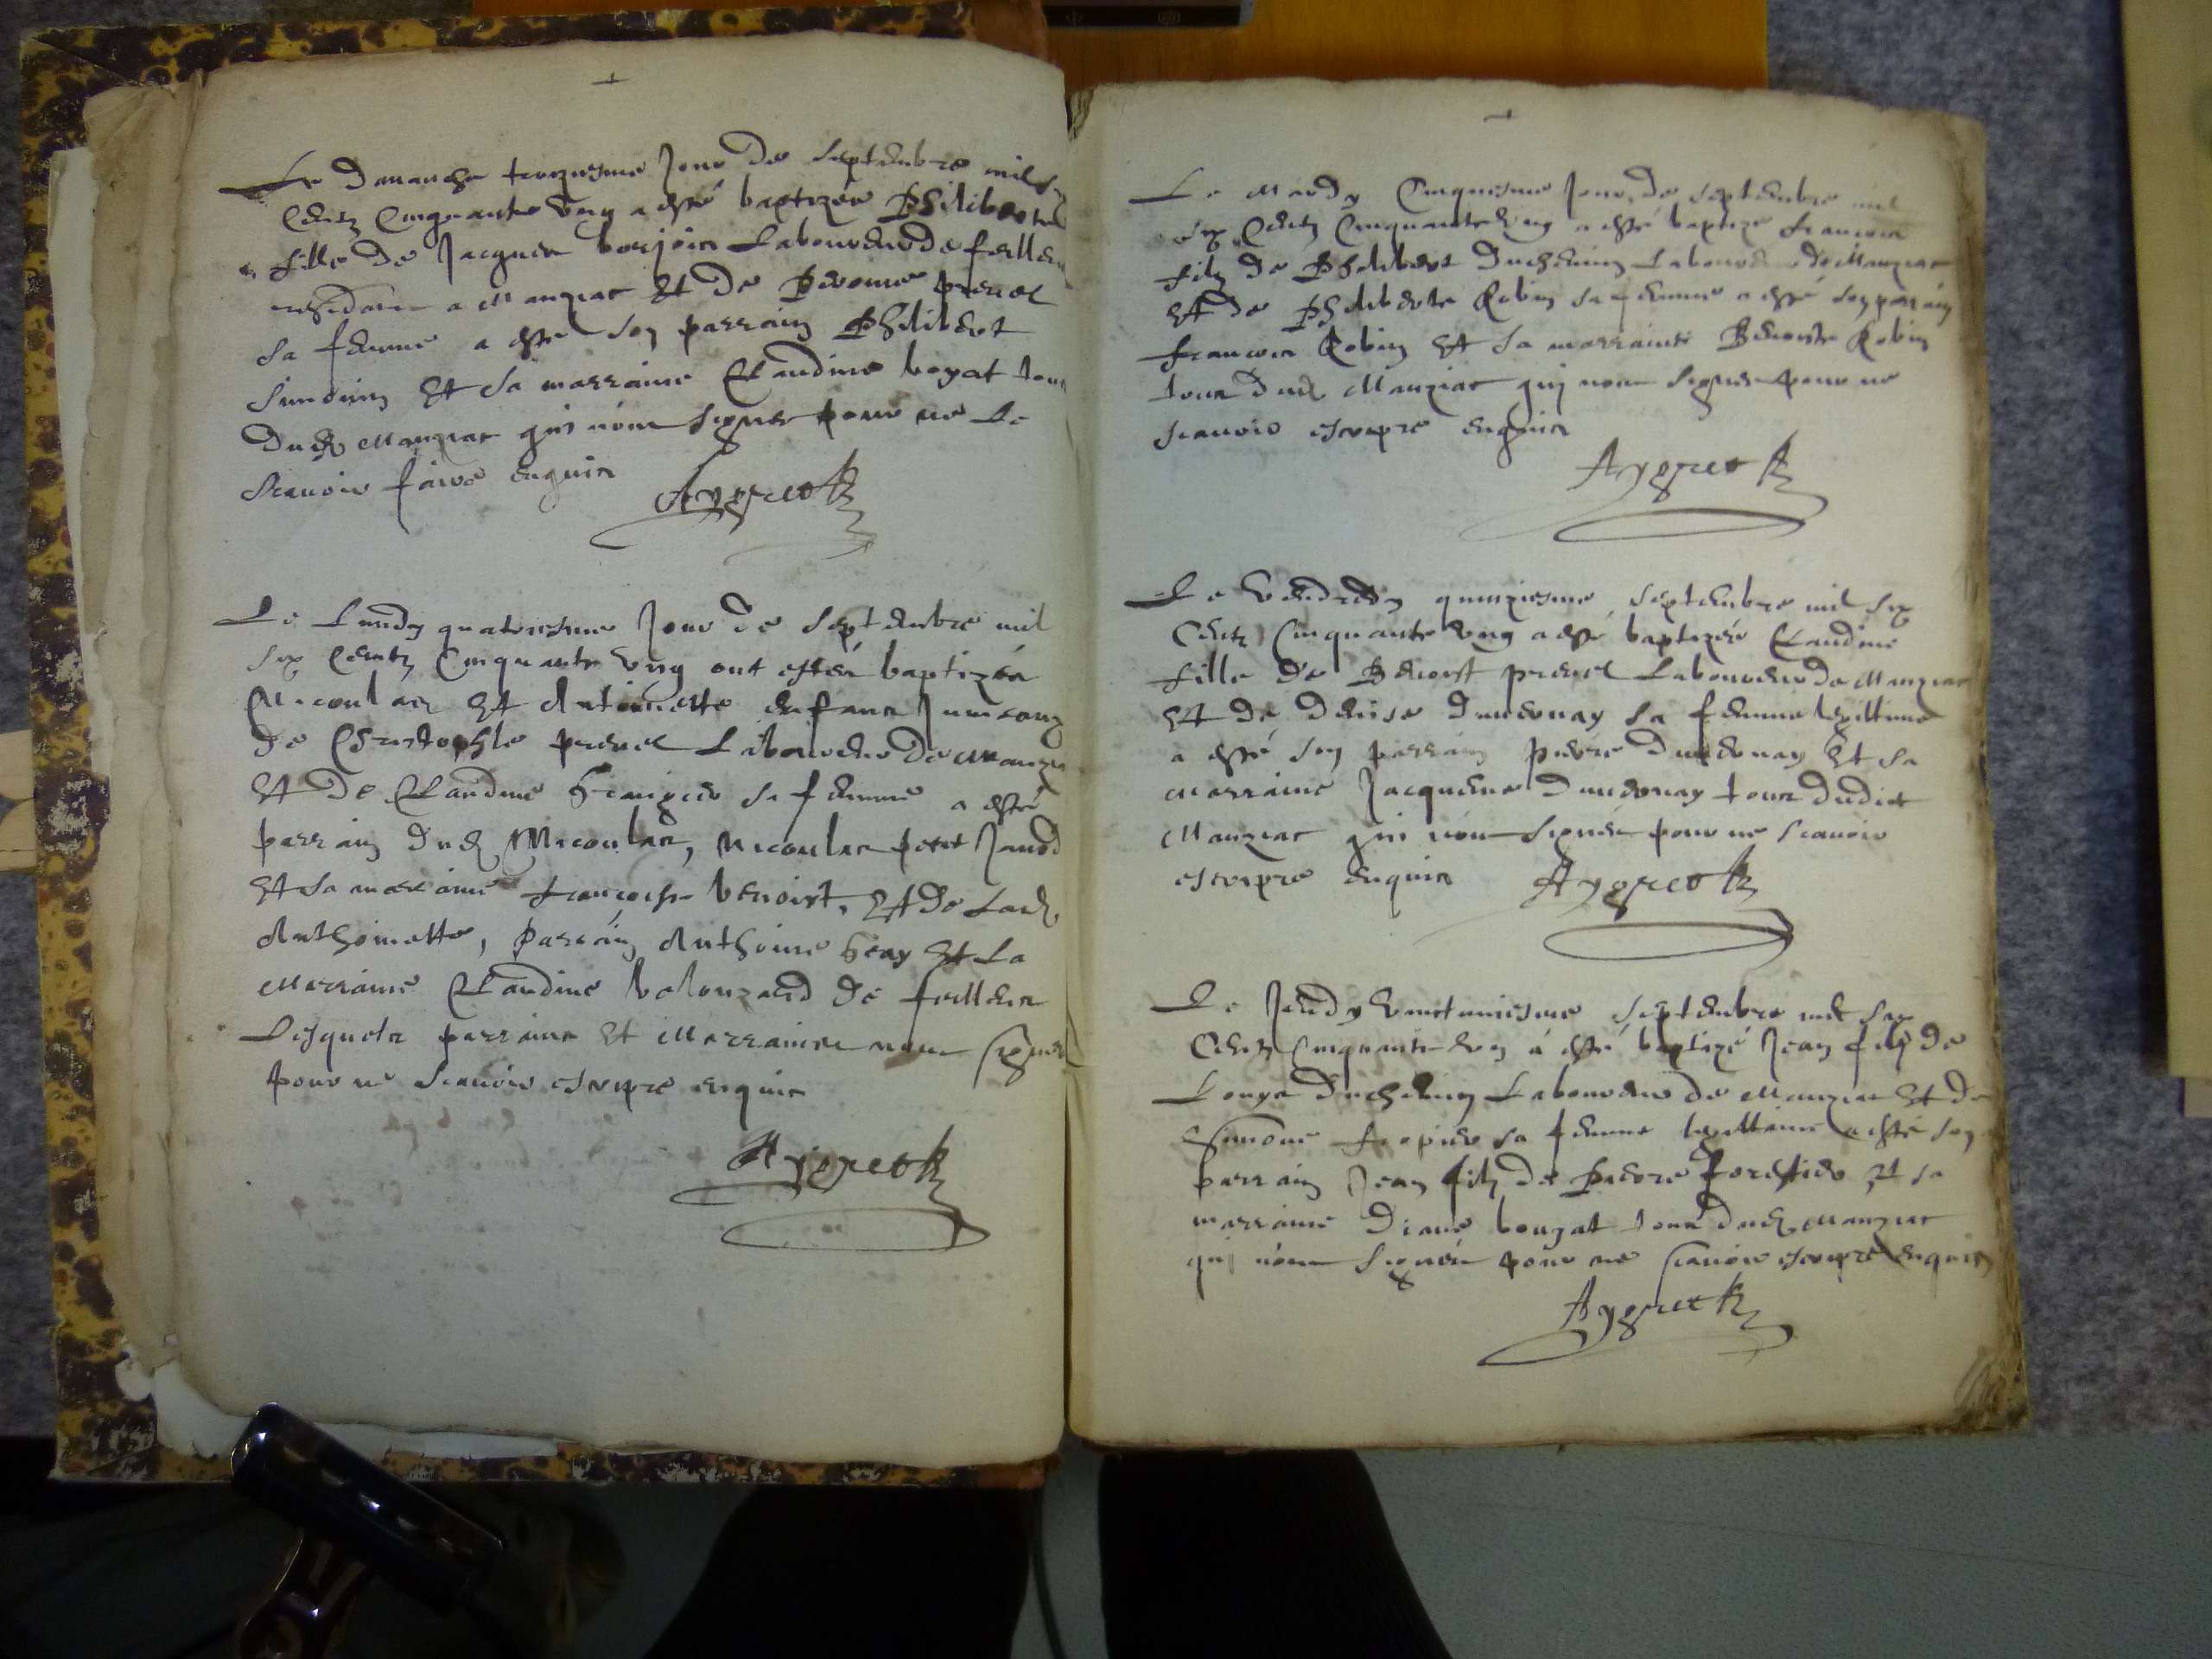 Le dimanche troyziesme Jour de septembre mil six
Centz Cinquante Ung a esté baptizée Philiberte
fille de Jacques borjoin Laboureur de feillens
residant a Manziat Et de Peronne prevel
sa femme a esté son parrain Philibert
Et sa marraine Claudine boyat tous
dud Manziat qui n'ont signer pour ne le
scavoir faire enquis
Aygreotz
Le Lundy quatriesme Jour de septembre mil
six Centz Cinquante Ung ont estéz baptizéz
Nicoulas Et Antoinette enfans Jumeaux
de Christophle prevel Laboureur de Manziat
Et de Claudine sa femme a esté
parrain dud Nicoulas, Nicoulas petit Janod
Et sa marraine francoise benoist, Et de Lad
Anthoinette, parrain Anthoine feay Et La
Marraine Claudine de feillens
Lesquels parrains Et Marraines n'ont signer
pour ne scavoir escripre enquis
Aygreotz
Le Mardy Cinquiesme Jour de septembre mil
six Centz Cinquante Ung a esté baptizé francois
filz de Philibert Duchenin Laboureur de Manziat
Et de Philiberte Robin sa femme a esté son parrain
francois Robin Et sa marraine Benoiste Robin
tous dud Manziat qui n'ont signer pour ne
scavoir escripre enquis
Aygreotz
Le Vendredy quinziesme septembre mil six
Centz Cinquante Ung a esté baptizée Claudine
fille de Benoist prevel Laboureur de Manziat
Et de Denise Dandenay sa femme legittime
a esté son parrain pierre Dandenay Et sa
Marraine Jacquème Dandenay tous dudict
Manziat qui n'ont signer pour ne scavoir
escripre enquis Aygreotz
Le Jeudy Vinctuniesme septembre mil six
Centz Cinquante Ung a esté baptizé Jean filz de
Louys Duchenin Laboureur de Manziat Et de
Simonne sa femme legittime a esté son
parrain Jean filz de Pierre forestier Et sa
marraine Diane bouzat tous dud Manziat
qui n'ont signéz pour ne scavoir escripre enquis
Aygreotz